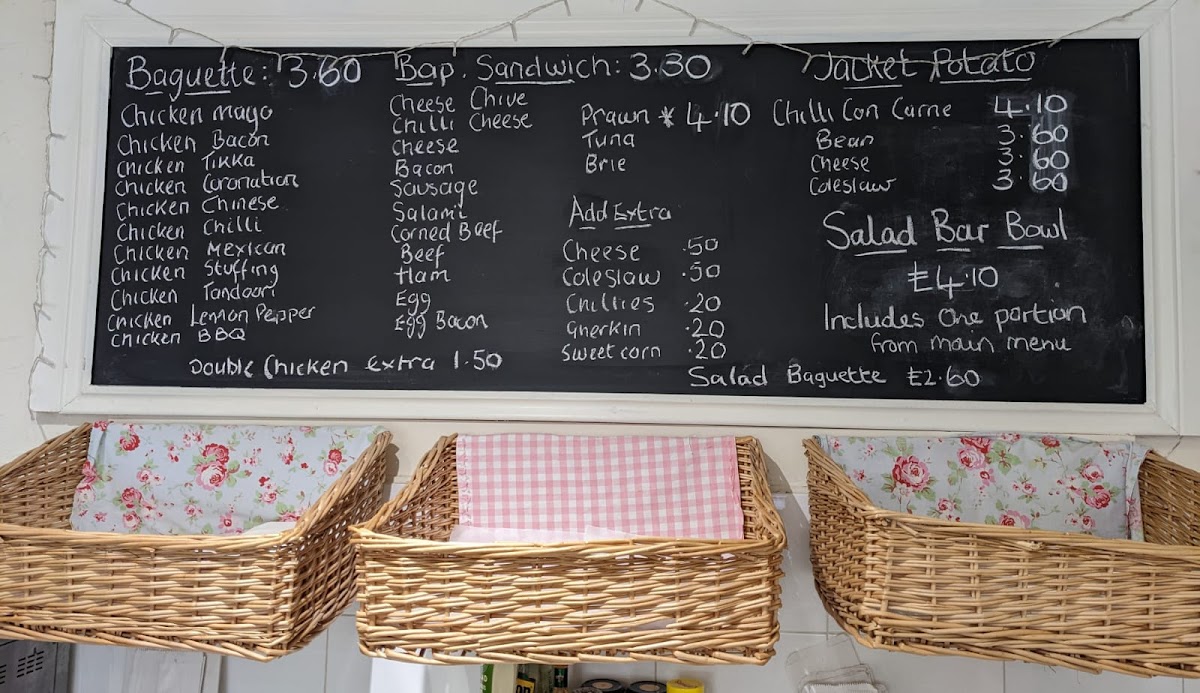 Baguette: 3.60
Chicken mayo
Chicken Bacon
Chicken Tikka
Chicken Coronation
Chicken Chinese
Chicken Chilli
Chicken Mexican
Chicken Stuffing
Chicken Tandoori
Chicken Lemon Pepper
Chicken BBQ
Double Chicken Extra 1.50
Bap. Sandwich: 3.30
Cheese Chive
Chilli Cheese
Cheese
Bacon
Sausage
Salami
Corned Beef
Beef
Ham
Egg
Egg Bacon
Prawn * 4.10
Tuna
Brie
Add Extra
Cheese .50
Coleslaw .50
Chillies .20
Gherkin .20
Sweetcorn .20
Jacket Potato
Chilli Con Carne 4.10
Bean 3.60
Cheese 3.60
Coleslaw 3.60
Salad Bar Bowl
£4.10
Includes One portion
from main menu
Salad Baguette £2.60